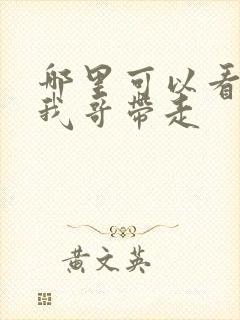 哪里可以看
我哥带走
黄文英